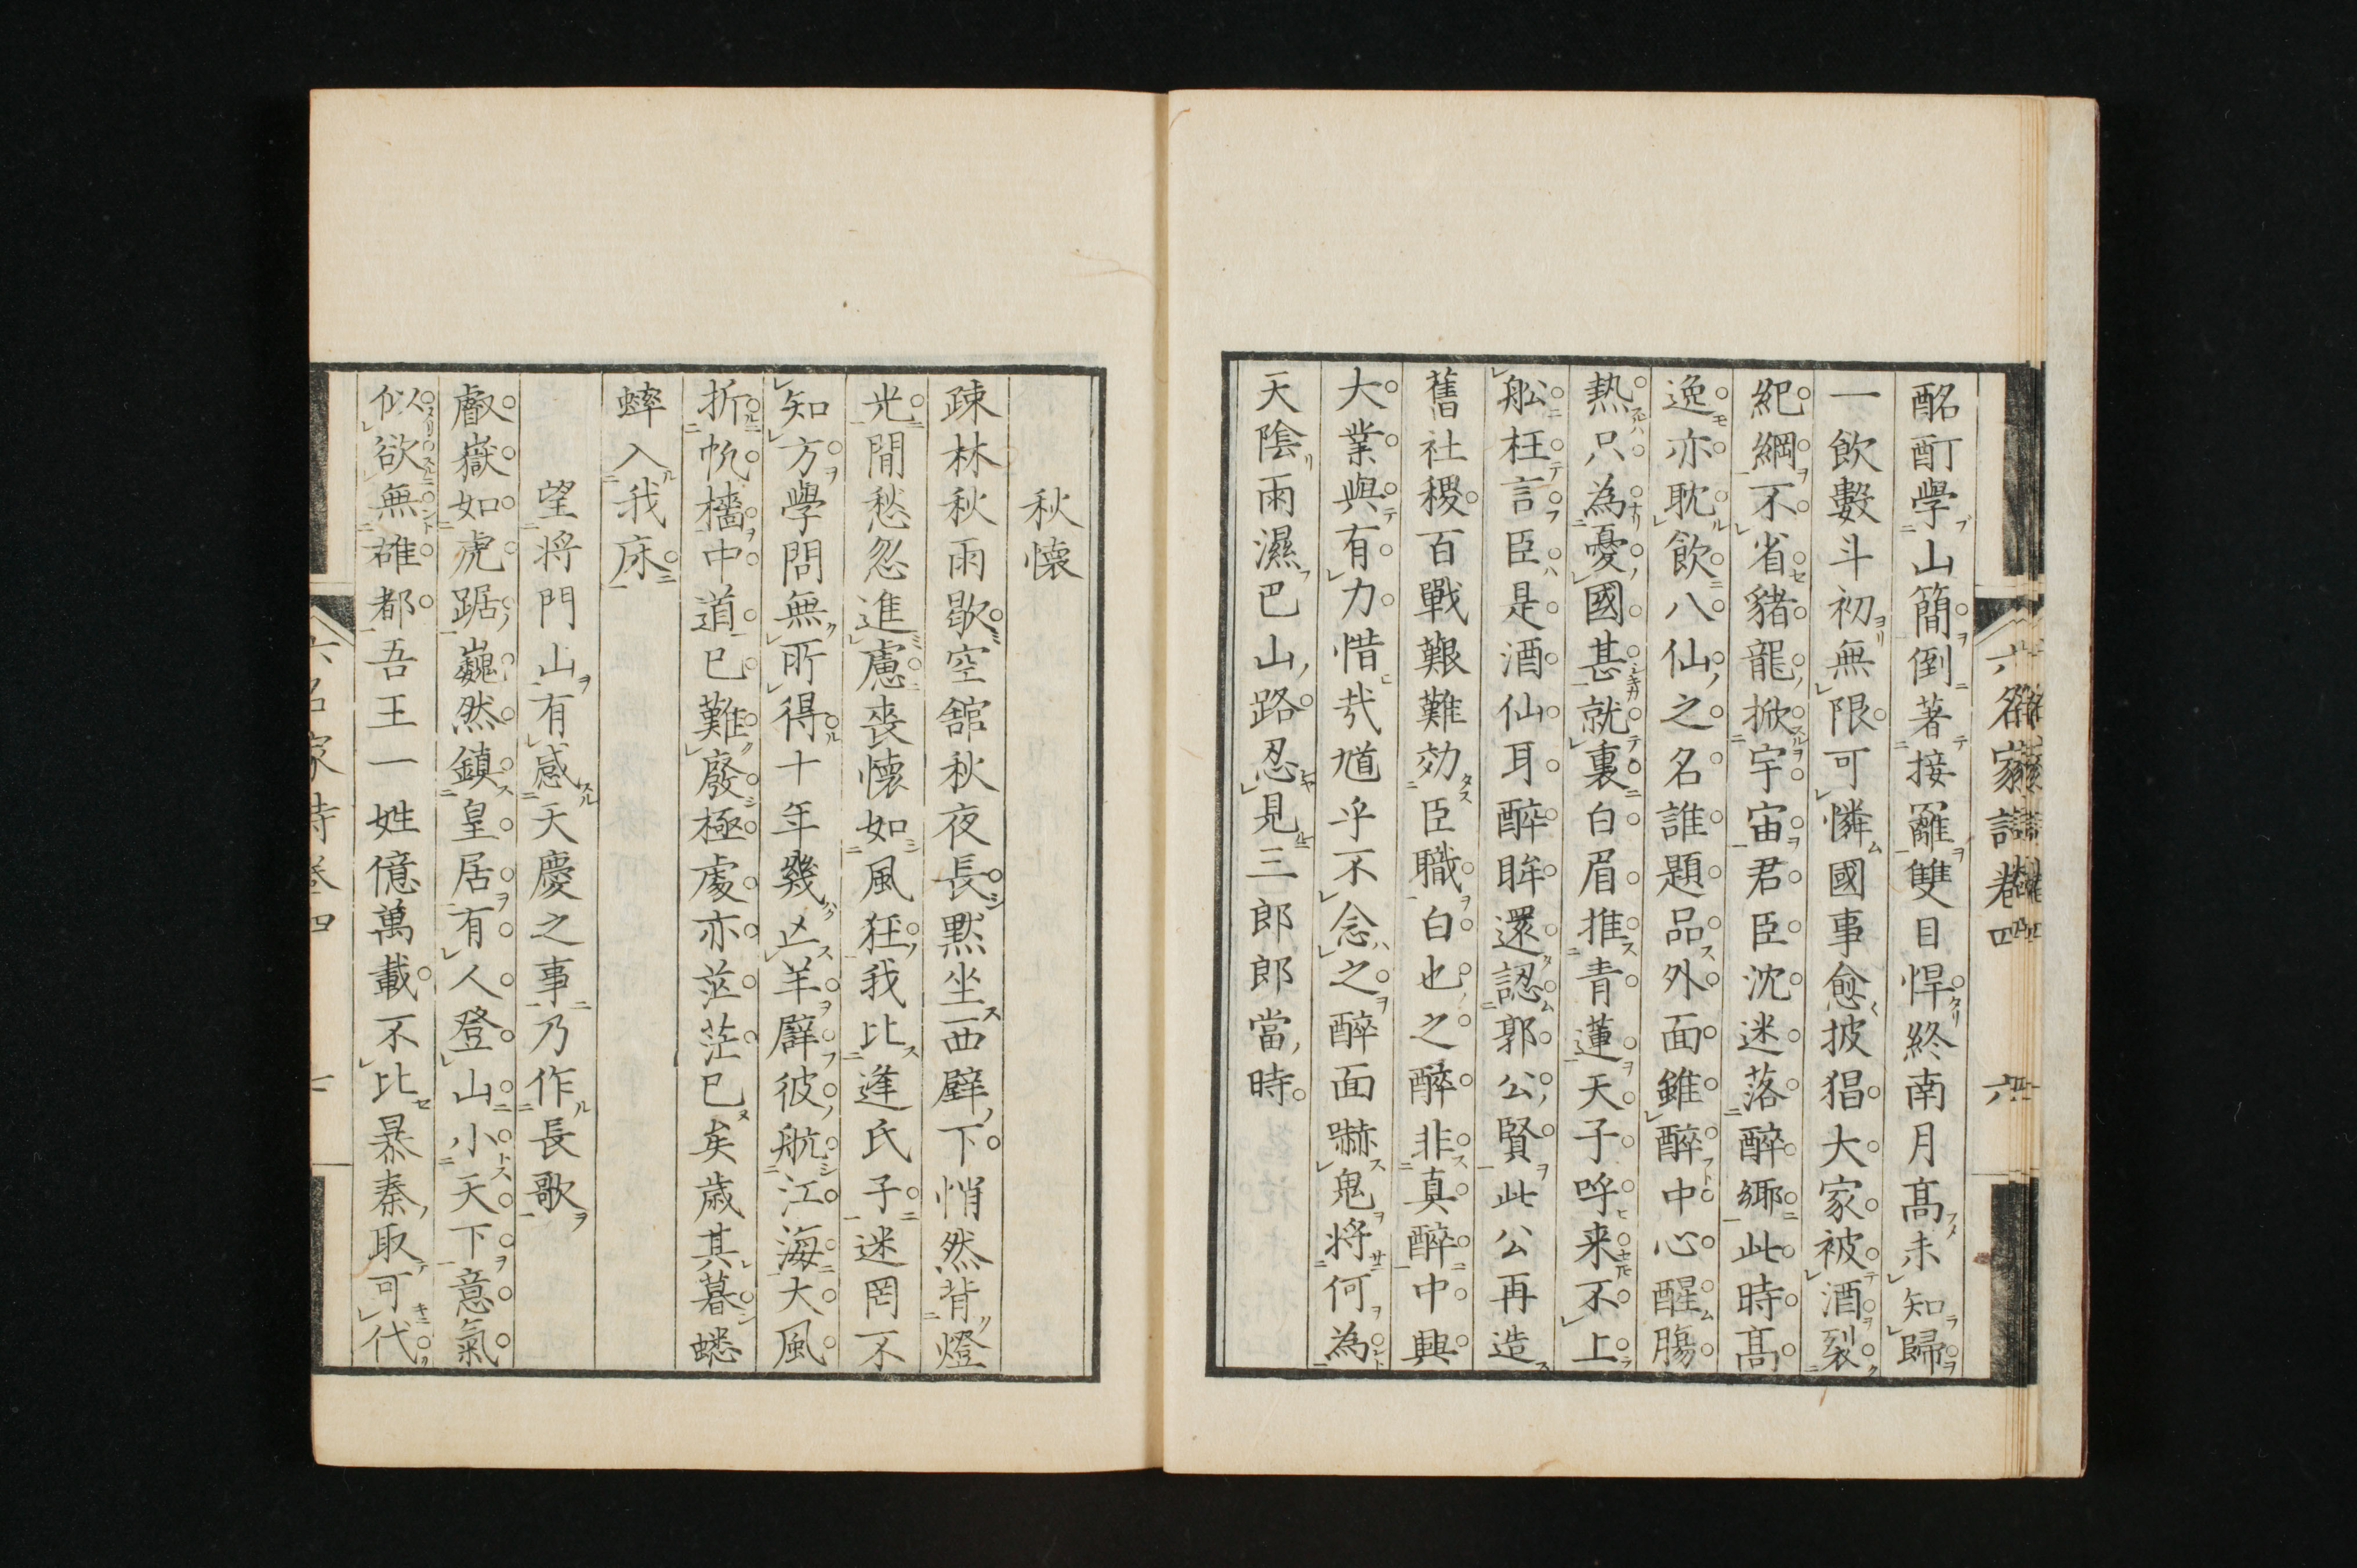 六名家詩卷四 六
酩酊學山簡倒著接䍦雙目悍終南月高未知歸
一飲數斗初無限可憐國事愈披猖大家被酒裂
紀綱不省豬龍掀宇宙君臣沈迷落醉鄉此時高
逸亦耽飲八仙之名誰題品外面雖醉中心醒腸
熱只為憂國甚就裏白眉推青蓮天子呼来不上
舩枉言臣是酒仙耳醉眸還認郭公賢此公再造
舊社稷百戰艱難効臣職白也之醉非真醉中興
大業與有力惜哉馗乎不念之醉面嚇鬼將何為
天陰雨濕巴山路忍見三郎郎當時
秋懷
疎林秋雨歇空舘秋夜長黙坐西壁下悄然背燈
光閒愁忽進慮喪懷如風狂我比逢氏子迷罔不
知方學問無所得十年幾亾羊譬彼航江海大風
折帆檣中道已難廢極處亦茫茫已矣歳其暮蟋
蟀入我床
望将門山有感天慶之事乃作長歌
叡嶽如虎踞巍然鎮皇居有人登山小天下意氣
似欲無雄都吾王一姓億萬載不比暴秦取可代
六名家詩卷四